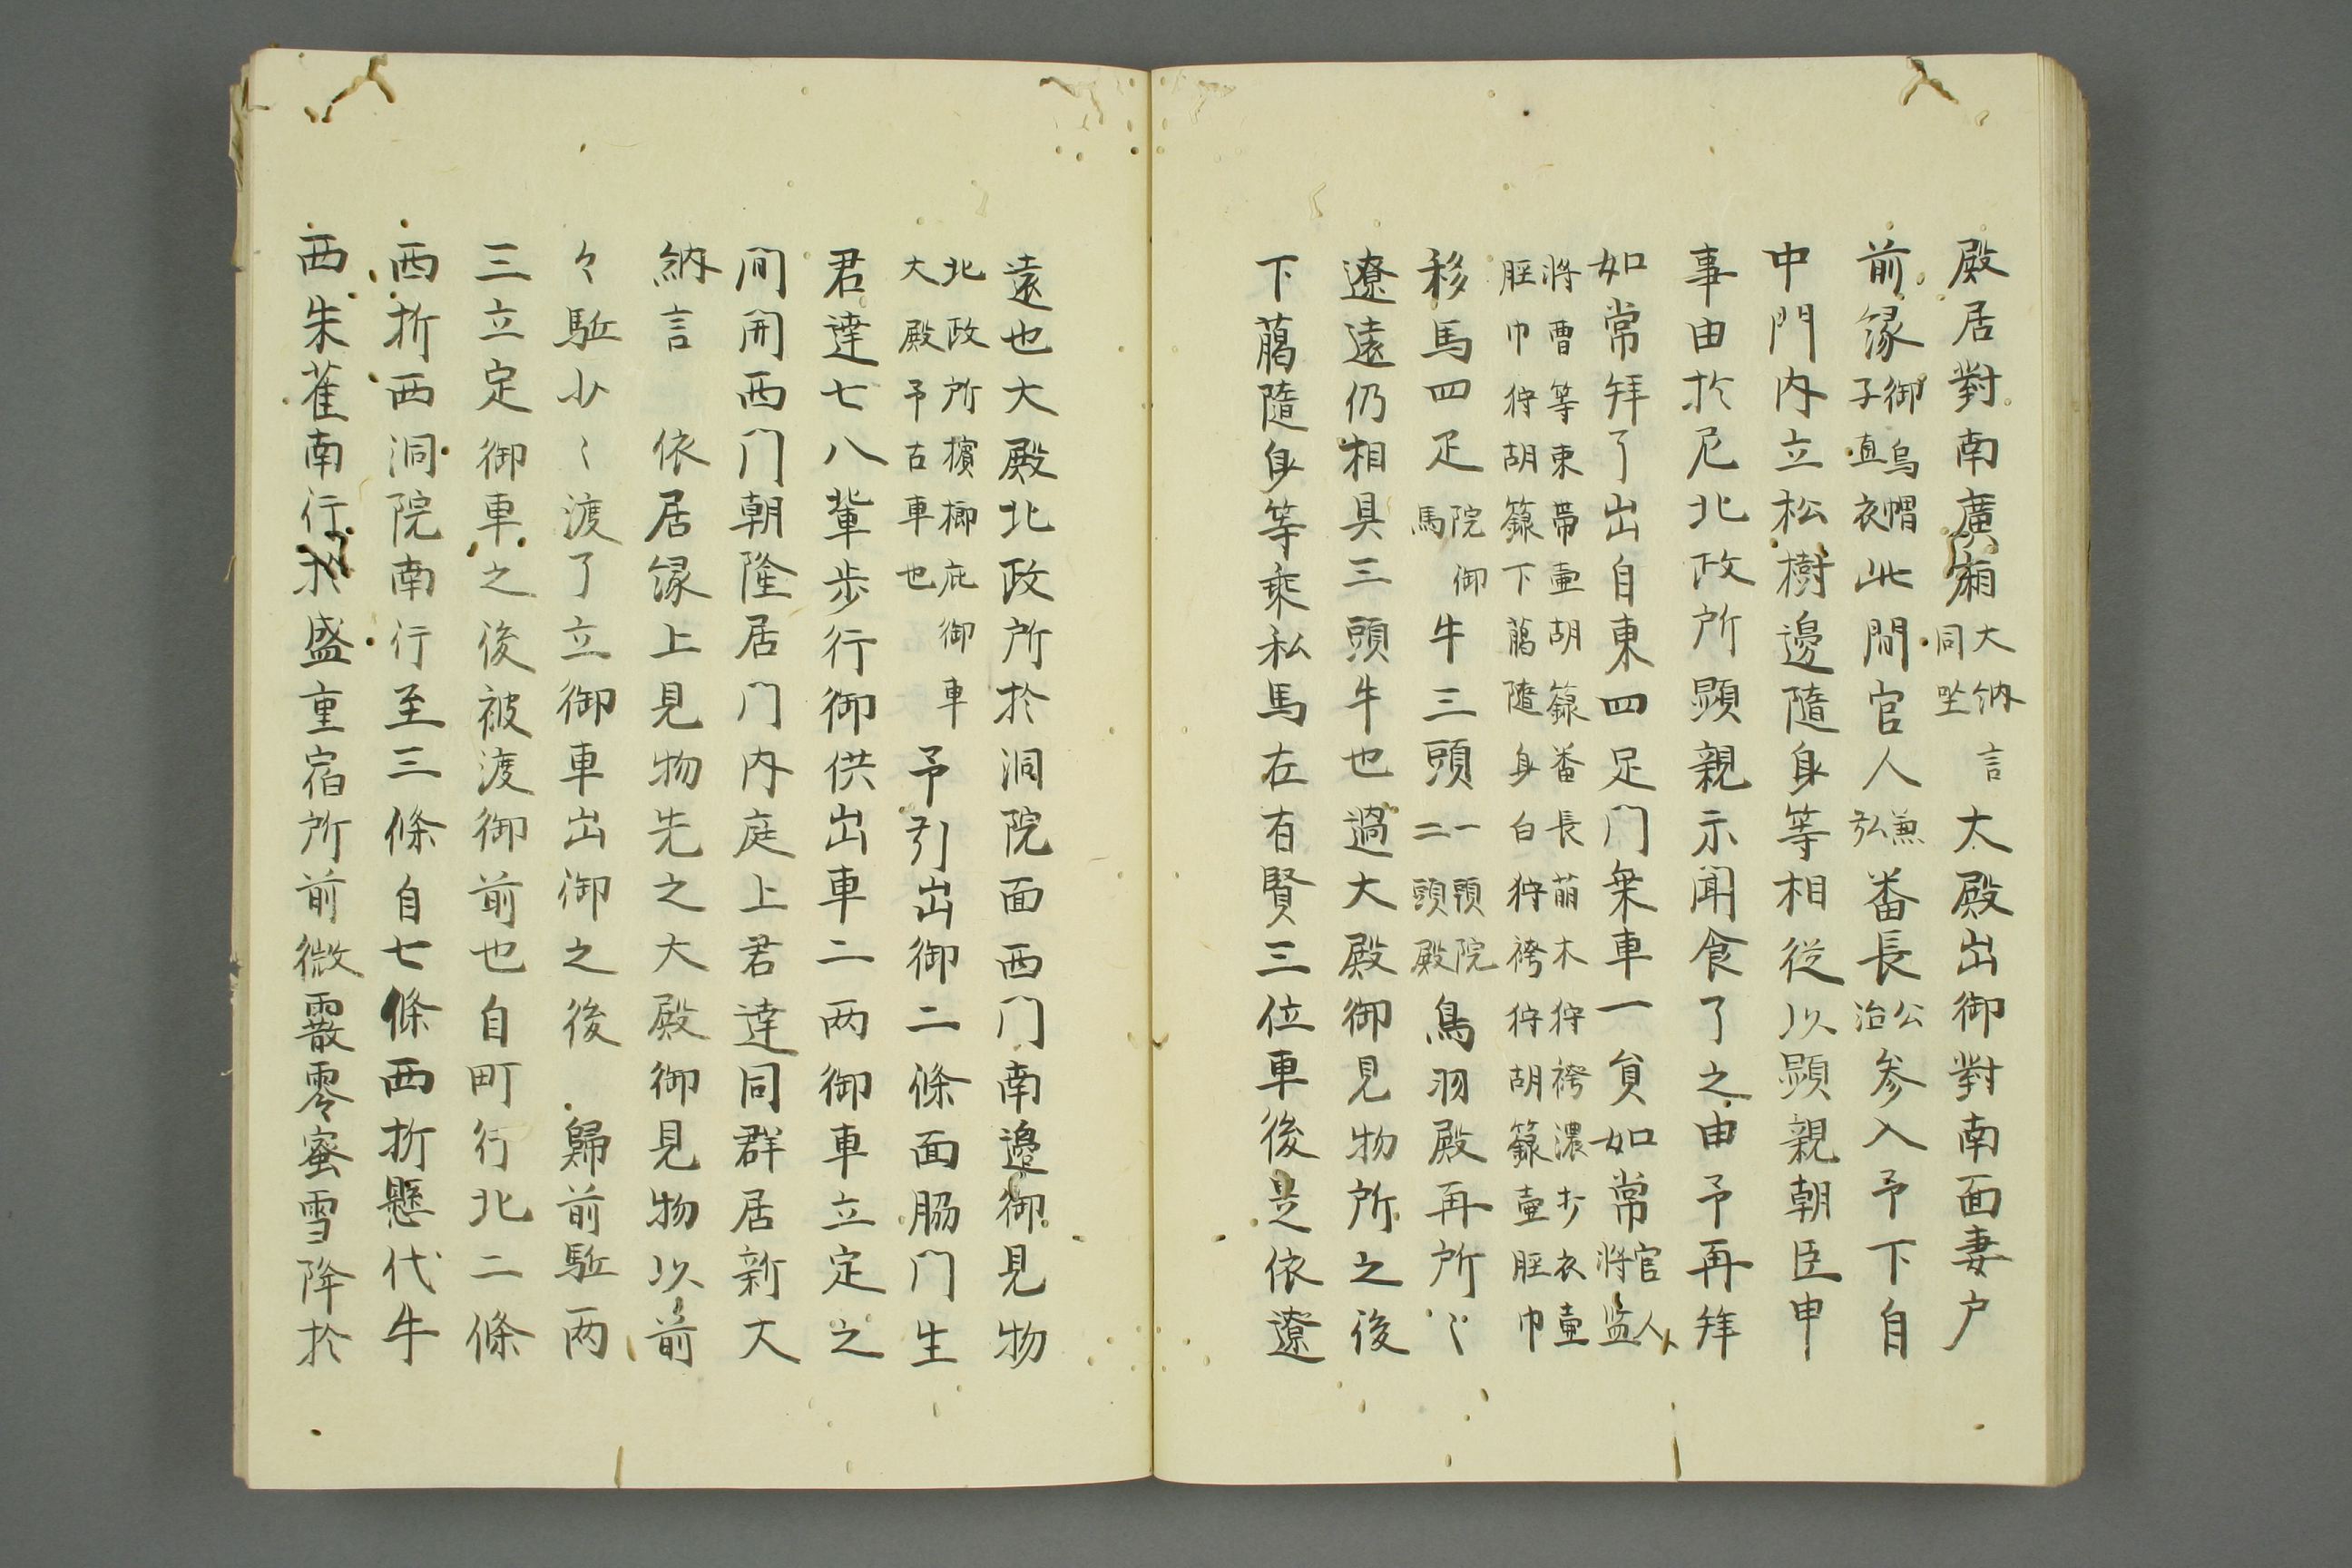 殿居對南廣廂大納言同坐太殿出御對南面妻户
前縁御烏帽子直衣此間官人兼弘番長公治参入予下自
中門内立松樹邊隨身等相從以顕親朝臣申
事由於尼北政所顕親示聞食了之由予再拜
如常拜了出自東四足門乗車一員如常官人将監
将曹等束帯壷胡籙番長萠木狩袴濃打衣壷
脛巾狩胡籙下臈隨身白狩袴狩胡籙壷脛巾
移馬四疋院御馬牛三頭一頭院二頭殿鳥羽殿再所〻
遼遠仍相具三頭牛也過大殿御見物所之後
下臈隨身等乘私馬在右賢三位車後是依遼
遠也大殿北政所於洞院面西门南邉御見物
北政所檳榔庇御車大殿予古車也予引出御二條面脇门生
君達七八輩歩行御供出車二両御車立定之
间開西门朝隆居门内庭上君達同群居新大
納言　依居縁上見物先之大殿御見物以前
々駈少〻渡了立御車出御之後　歸前駈两
三立定御車之後被渡御前也自町行北二條
西折西洞院南行至三條自七條西折懸代牛
西朱雀南行於盛重宿所前微霰零蜜雪降於